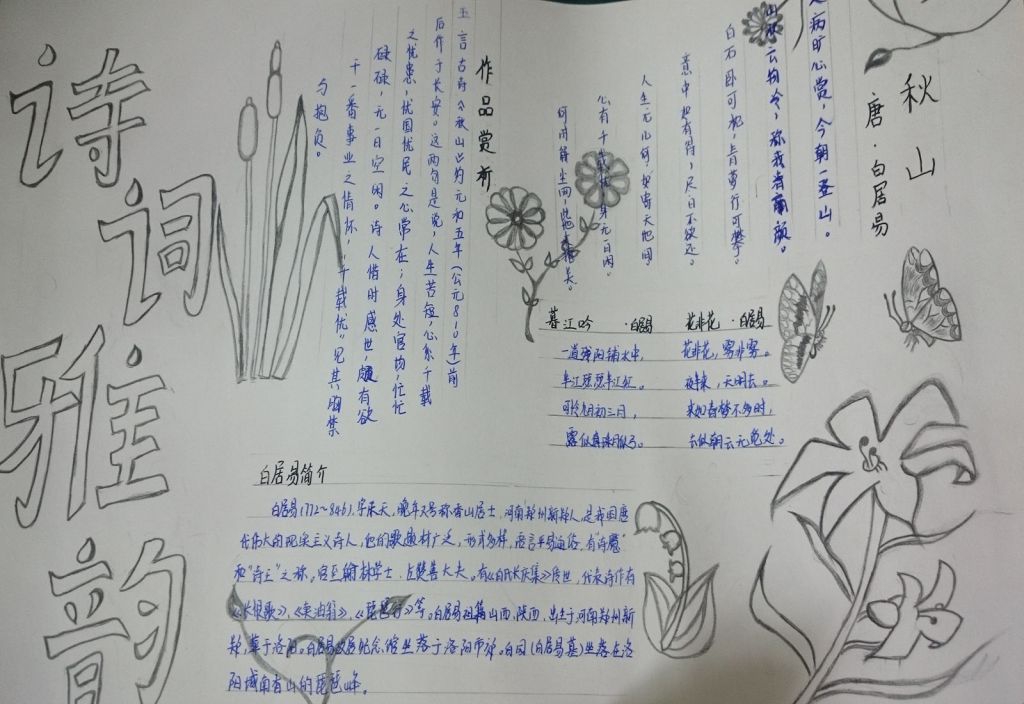 诗词雅韵
秋山
唐·白居易
病旷心赏，今朝一登山。
山秋云物冷，称我清羸颜。
白石卧可枕，青萝行可攀。
意中如有得，尽日不欲还。
人生无几何，如寄天地间
心有千载忧，身无一日闲。
何时解尘网，此地来掩关。
作品赏析
五言古诗《秋山》约元和五年（公元810年）前
后作于长安。这两句是说，人生苦短，心系千载
之忧患，忧国忧民之心常在；身处官场，忙忙
碌碌，无一日空闲。诗人借时感世，颇有欲
干一番事业之情怀，"千载忧"见其胸襟
与抱负。
暮江吟 ·白居易
一道残阳铺水中，
半江瑟瑟半江红。
可怜九月初三日，
露似真珠月似弓。
花非花 ·白居易
花非花，雾非雾。
夜半来，天明去。
来如春梦不多时，
去似朝云无觅处。
白居易简介
白居易(772～846)，字乐天，晚年又号称香山居士，河南郑州新郑人，是我国唐
代伟大的现实主义诗人，他的歌题材广泛，形式多样，语言平易通俗，有"诗魔"
和"诗王"之称。官至翰林学士、左赞善大夫。有《白氏长庆集》传世，代表诗作有
《长恨歌》，《卖油翁》，《琵琶行》等。白居易祖籍山西，陕西，出生于河南郑州新
郑，葬于洛阳。白居易故居纪念馆坐落于洛阳市郊。白园（白居易墓）坐落在洛
阳城南香山的琵琶峰。